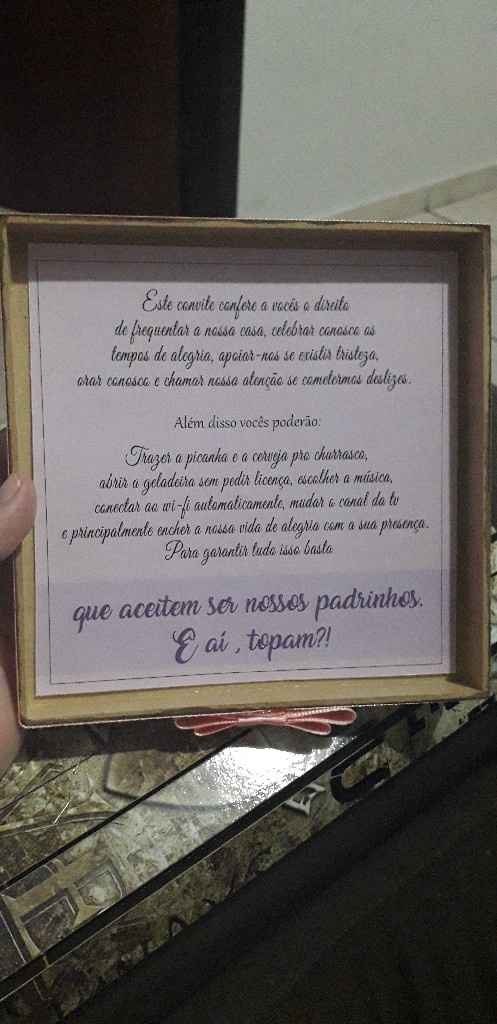 Este convite confere a vocês o direito
de frequentar a nossa casa, celebrar conosco os
tempos de alegria, apoiar-nos se existir tristeza,
orar conosco e chamar nossa atenção se cometermos deslizes.
Além disso vocês poderão:
Trazer a picanha e a cerveja pro churrasco,
abrir a geladeira sem pedir licença, escolher a música,
conectar ao wi-fi automaticamente, mudar o canal da tv
e principalmente encher a nossa vida de alegria com a sua presença.
Para garantir tudo isso basta
que aceitem ser nossos padrinhos.
E aí , topam?!